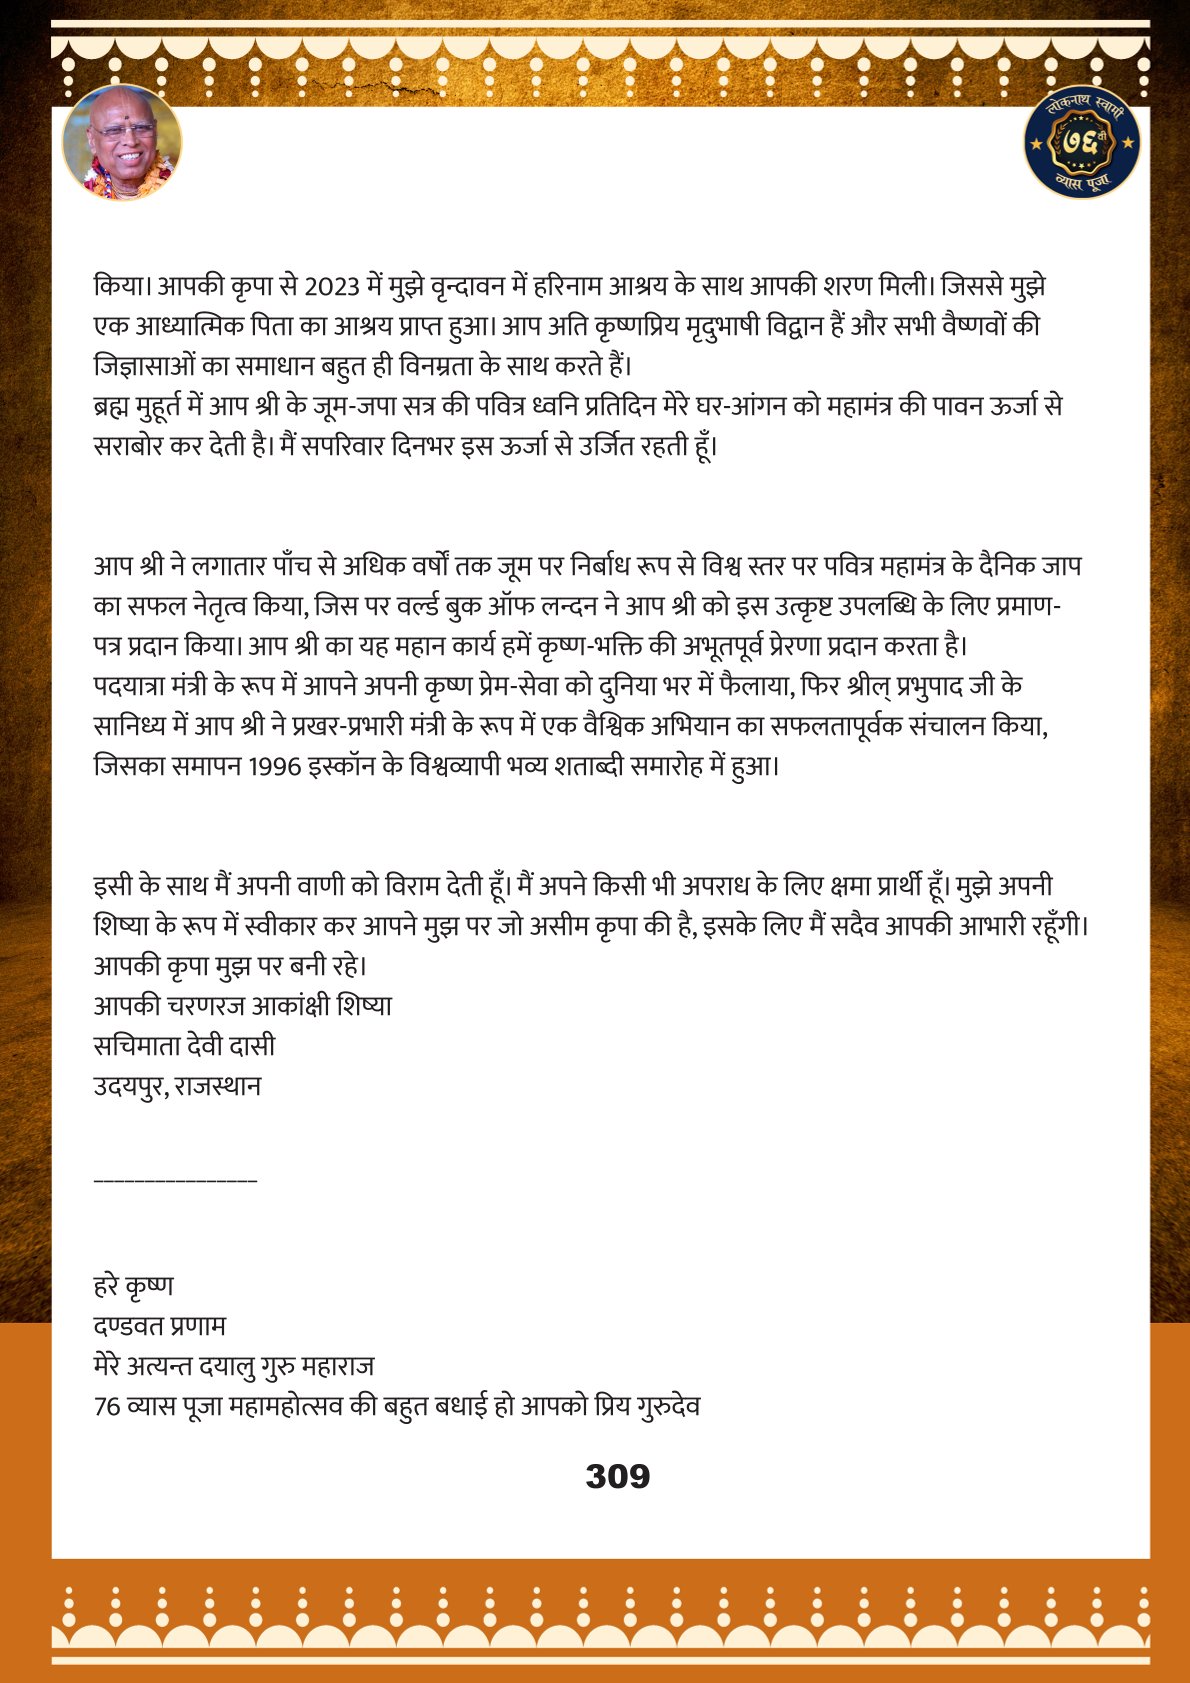 लोकनाथ स्वामी
७६ वी
व्यास पूजा
किया। आपकी कृपा से 2023 में मुझे वृन्दावन में हरिनाम आश्रय के साथ आपकी शरण मिली। जिससे मुझे
एक आध्यात्मिक पिता का आश्रय प्राप्त हुआ। आप अति कृष्णप्रिय मृदुभाषी विद्वान हैं और सभी वैष्णवों की
जिज्ञासाओं का समाधान बहुत ही विनम्रता के साथ करते हैं।
ब्रह्म मुहूर्त में आप श्री के जूम-जपा सत्र की पवित्र ध्वनि प्रतिदिन मेरे घर-आंगन को महामंत्र की पावन ऊर्जा से
सराबोर कर देती है। मैं सपरिवार दिनभर इस ऊर्जा से उर्जित रहती हूँ।
आप श्री ने लगातार पाँच से अधिक वर्षों तक जूम पर निर्बाध रूप से विश्व स्तर पर पवित्र महामंत्र के दैनिक जाप
का सफल नेतृत्व किया, जिस पर वर्ल्ड बुक ऑफ लन्दन ने आप श्री को इस उत्कृष्ट उपलब्धि के लिए प्रमाण-
पत्र प्रदान किया। आप श्री का यह महान कार्य हमें कृष्ण-भक्ति की अभूतपूर्व प्रेरणा प्रदान करता है।
पदयात्रा मंत्री के रूप में आपने अपनी कृष्ण प्रेम-सेवा को दुनिया भर में फैलाया, फिर श्रील् प्रभुपाद जी के
सानिध्य में आप श्री ने प्रखर-प्रभारी मंत्री के रूप में एक वैश्विक अभियान का सफलतापूर्वक संचालन किया,
जिसका समापन 1996 इस्कॉन के विश्वव्यापी भव्य शताब्दी समारोह में हुआ।
इसी के साथ मैं अपनी वाणी को विराम देती हूँ। मैं अपने किसी भी अपराध के लिए क्षमा प्रार्थी हूँ। मुझे अपनी
शिष्या के रूप में स्वीकार कर आपने मुझ पर जो असीम कृपा की है, इसके लिए मैं सदैव आपकी आभारी रहूँगी।
आपकी कृपा मुझ पर बनी रहे।
आपकी चरणरज आकांक्षी शिष्या
सचिमाता देवी दासी
उदयपुर, राजस्थान
________________
हरे कृष्ण
दण्डवत प्रणाम
मेरे अत्यन्त दयालु गुरु महाराज
76 व्यास पूजा महामहोत्सव की बहुत बधाई हो आपको प्रिय गुरुदेव
309